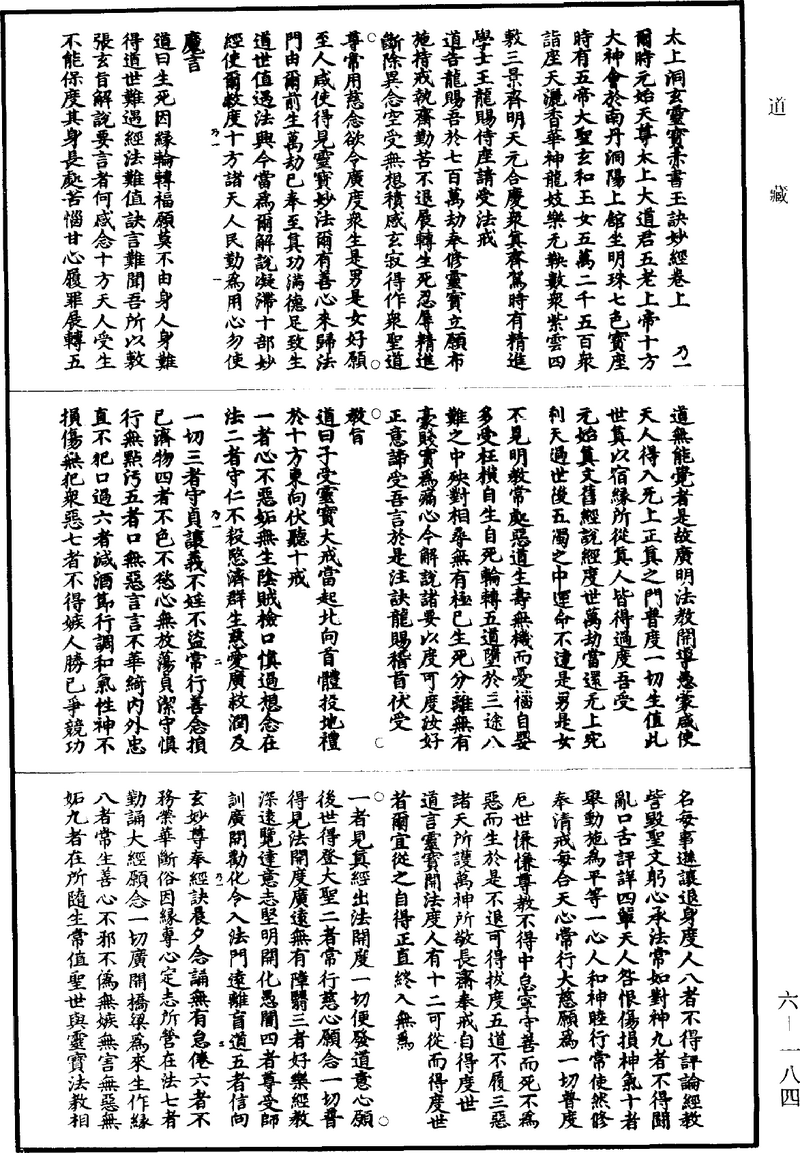 道藏
太上洞玄靈寶赤書玉訣妙經卷上 乃一
爾時元始天尊太上大道君五老上帝十方
大神會於南丹洞陽上館坐明珠七色寶座
時有五帝大聖玄和玉女五萬二千五百衆
詣座天灑香華神龍妓樂无鞅數衆紫雲四
敷三景齊明天元合慶衆真齊駕時有精進
學士王龍賜侍座請受法戒
道告龍賜吾於七百萬劫奉修靈寶立願布
施持戒執齋勤苦不退展轉生死忍辱精進
斷除異念空受無想積感玄寂得作衆聖道
尊常用慈念欲令廣度衆生是男是女好願
至人咸使得見靈寶妙法爾有善心來歸法
門由爾前生萬劫已奉至真功滿德足致生
道世值遇法興今當爲爾解說凝滯十部妙
經使爾救度十方諸天人民勤爲用心勿使
魔言
道曰生死因緣輪轉福願莫不由身人身難
得道世難遇經法難值訣言難聞吾所以敷
張玄旨解說要言者何感念十方天人受生
不能保度其身長處苦惱甘心履罪展轉五
道無能覺者是故廣明法教開導愚蒙咸使
天人得入无上正真之門普度一切生值此
世真以宿緣所從真人皆得過度吾受
元始真文舊經說經度世萬劫當還无上宛
利天過世後五濁之中運命不達是男是女
不見明教常處惡道生壽無機而憂惱自嬰
多受枉橫自生自死輪轉五道墮於三途八
難之中殃對相尋無有極已生死分離無有
豪賤實爲痛心今解說諸要以度可度紋好
正意諦受吾言於是注訣龍賜稽首伏受
教旨
道曰子受靈寶大戒當起北向首體投地禮
於十方東向伏聽十戒
一者心不惡妬無生陰賊檢口慎過想念在
法二者守仁不殺愍濟群生慈愛廣救潤及
一切三者守貞讓義不婬不盜常行善念損
己濟物四者不色不慾心無放蕩貞潔守慎
行無點污五者口無惡言言不華綺內外忠
直不犯口過六者減酒節行調和氣性神不
損傷無犯衆惡七者不得嫉人勝已爭競功
名每事遜讓退身度人八者不得評論經教
訾毀聖文躬心承法常如對神九者不得鬪
亂口舌評詳四輩天人咎恨傷損神氣十者
舉動施爲平等一心人和神睦行常使然修
奉清戒每合天心常行大慈願爲一切普度
厄世慊慊尊教不得中怠寧守善而死不爲
惡而生於是不退可得拔度五道不履三惡
諸天所護萬神所敬長齋奉戒自得度世
道言靈寶開法度人有十二可從而得度世
者爾宜從之自得正直終入無爲
一者見真經出法開度一切便發道意心願
後世得登大聖二者常行慈心願念一切普
得見法開度廣遠無有障翳三者好樂經教
深遠覽達意志堅明開化愚闇四者尊受師
訓廣開勸化令入法門遠離盲道五者信向
玄妙尊奉經訣晨夕念誦無有怠倦六者不
務榮華斷俗因緣專心定志所營在法七者
勤誦大經願念一切廣開橋梁爲來生作緣
八者常生善心不邪不僞無嫉無害無惡無
妬九者在所隨生常值聖世與靈寶法教相
六—一八四